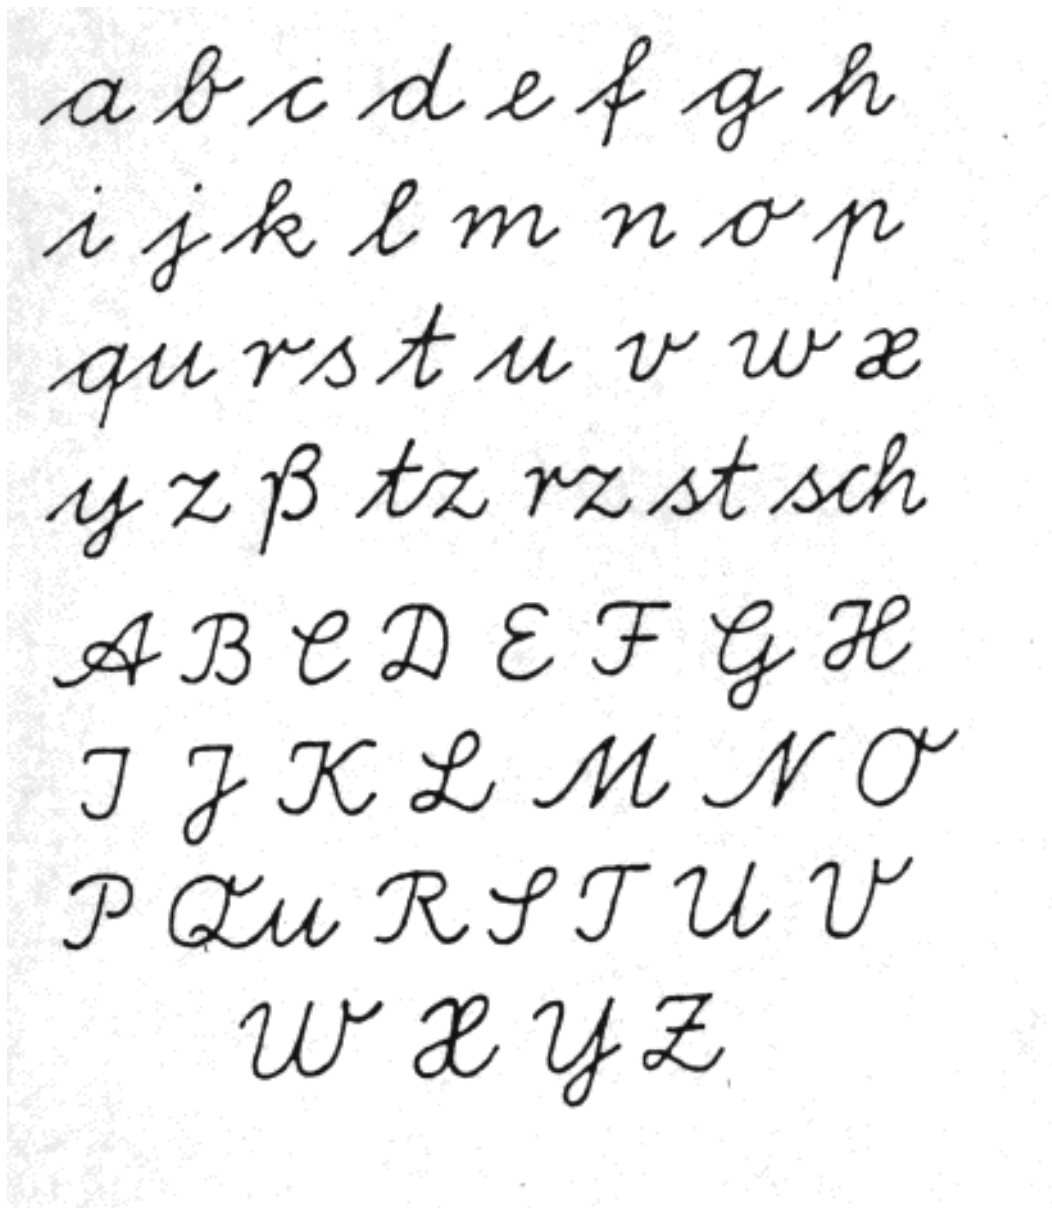 a b c d e f g h
i j k l m n o p
qu r s t u v w x
y z ß tz rz st sch
A B C D E F G H
I J K L M N O
P Qu R S T U V
W X Y Z